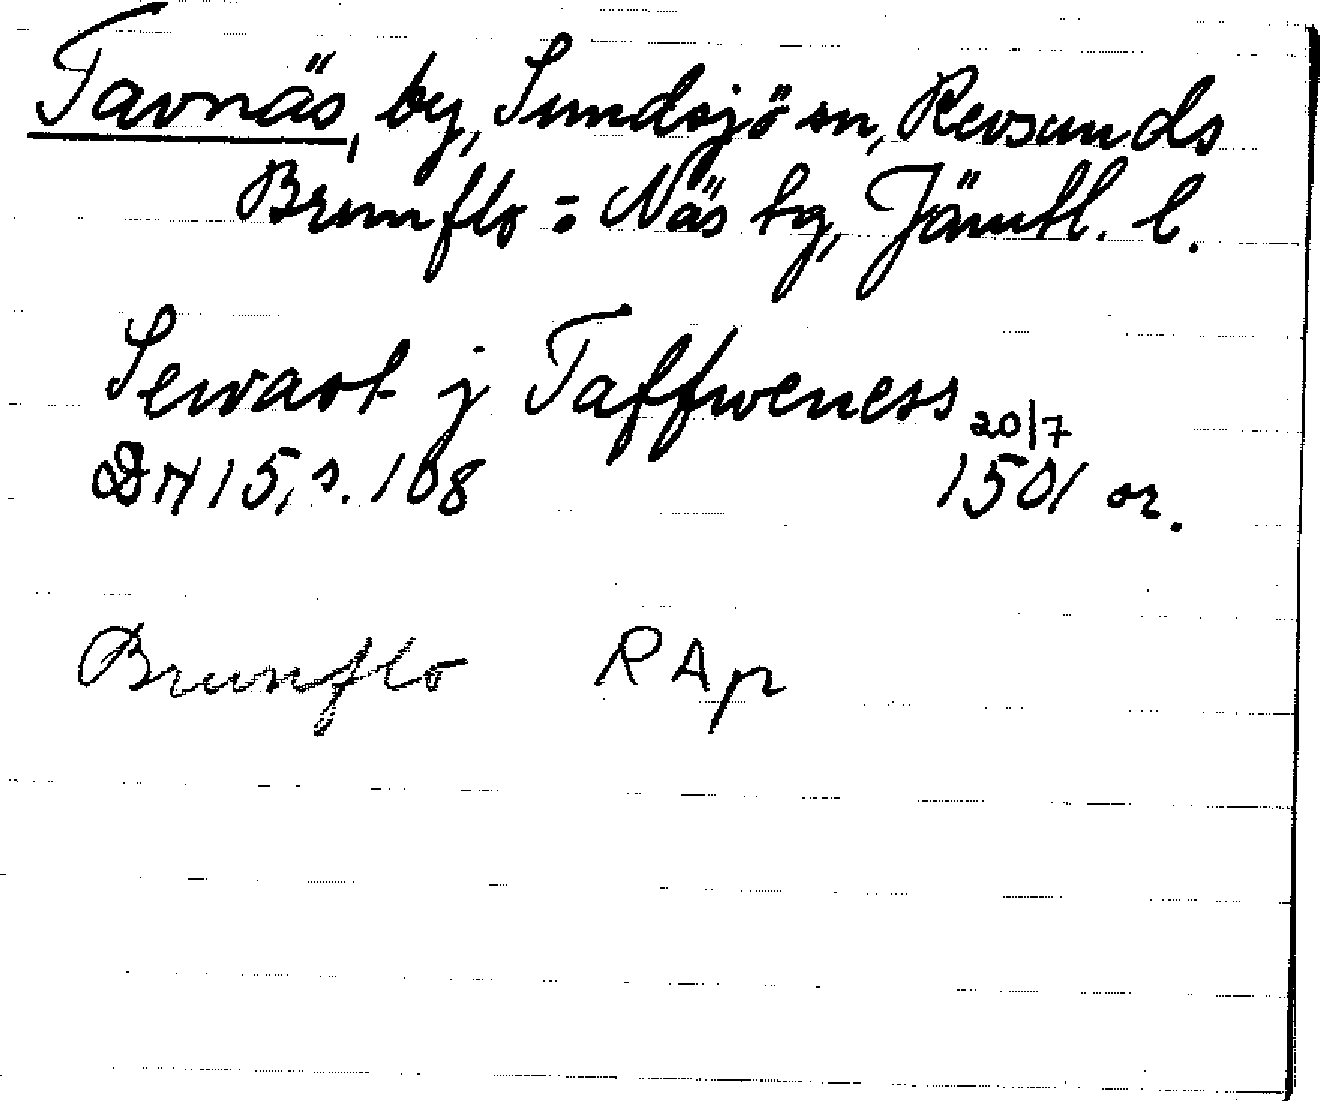 Tavnäs, by, Sundsjö sn, Revsunds
Brunflo = Näs tg, Jämtl. l.
Sewast j Taffweness
20/7
DN 15, s. 108 1501 or.
Brunflo RAp